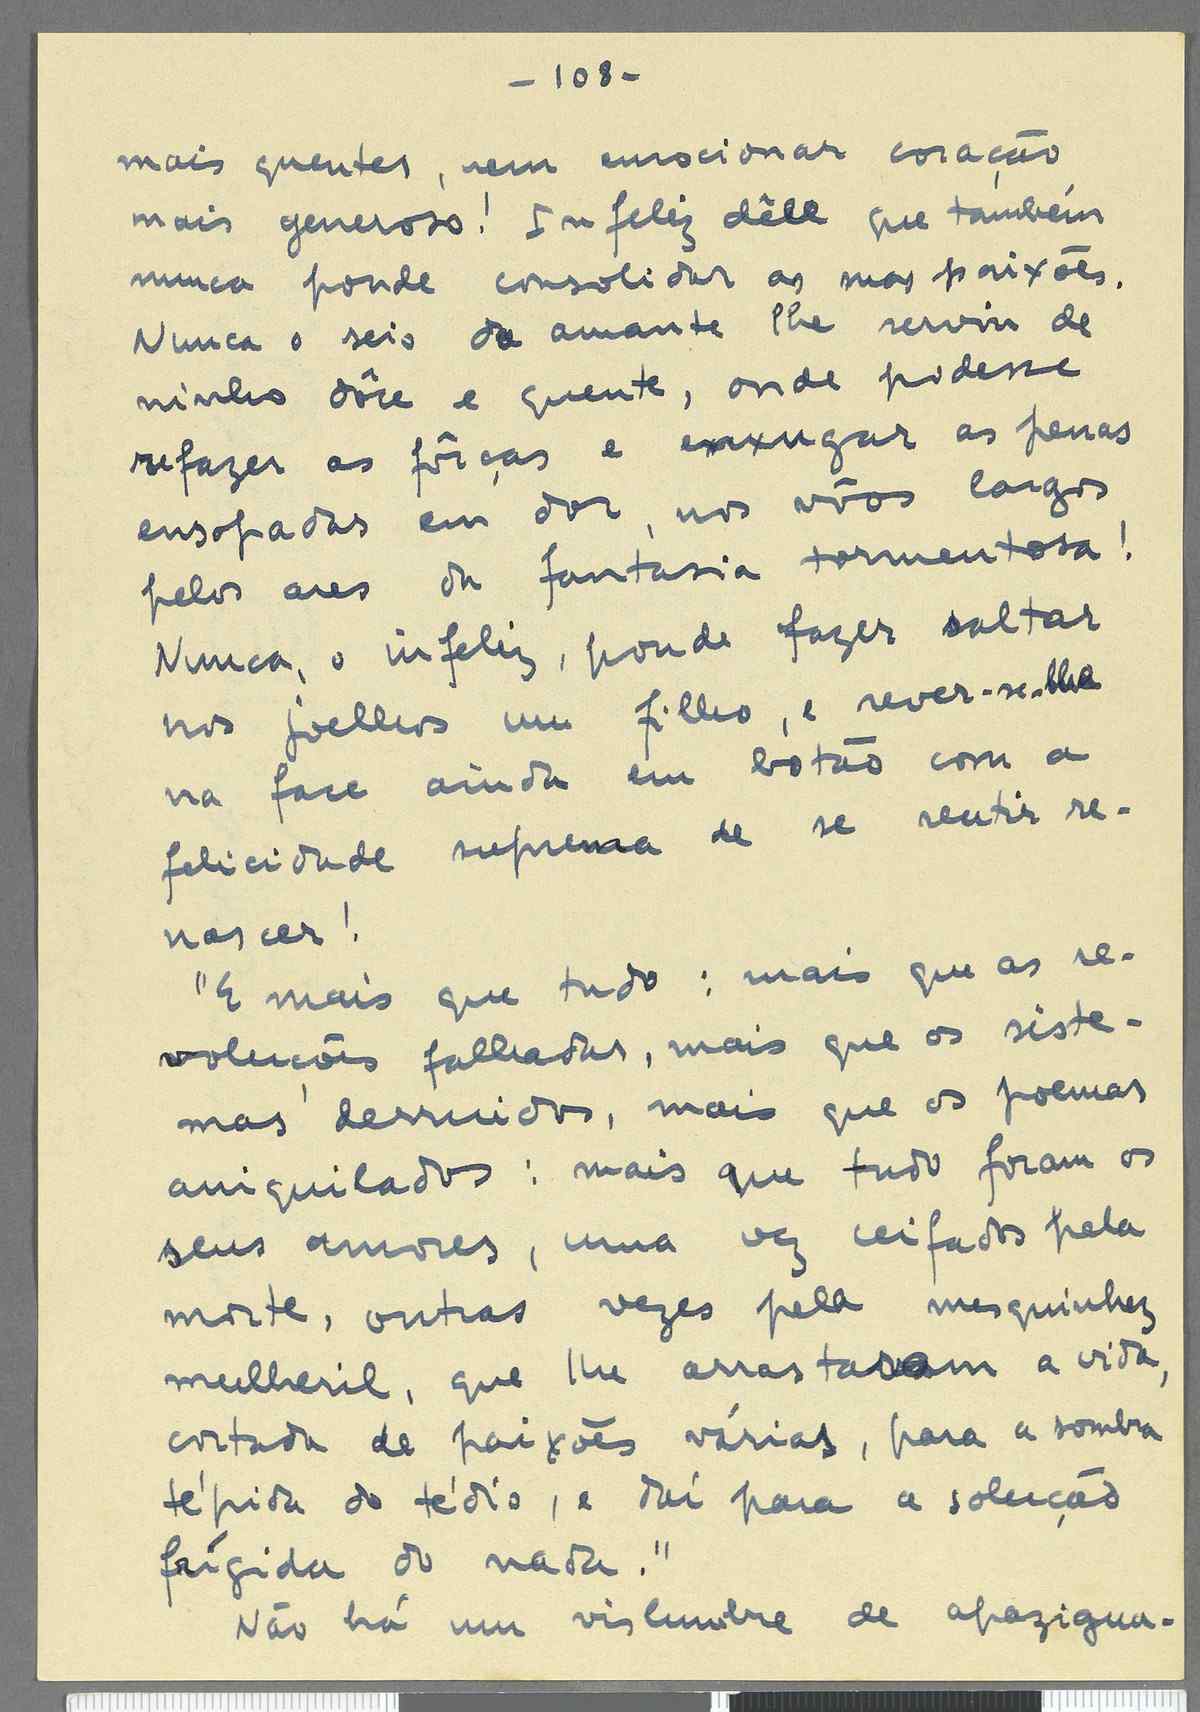 - 108 -
mais quentes, nem emocionar coração
mais generoso! Infeliz dêle que também
nunca poude consolidar as suas paixões.
Nunca o seio da amante lhe serviu de
ninho dôce e quente, onde podesse
refazer as fôrças e enxugar as penas
ensopadas em dor, nos vôos largos
pelos ares da fantasia tormentosa!
Nunca, o infeliz, poude fazer saltar
nos joelhos um filho, e rever-se-lhe
na face ainda em botão com a
felicidade suprema de se sentir re-
nascer!
"E mais que tudo: mais que as re-
voluções falhadas, mais que os siste-
mas derruidos, mais que os poemas
aniquilados: mais que tudo foram os
seus amores, uma vez ceifados pela
morte, outras vezes pela mesquinhez
mulheril, que lhe arrastaram a vida,
cortada de paixões várias, para a sombra
tépida do tédio, e daí para a solução
frígida do nada."
Não há um vislumbre de apazigua-